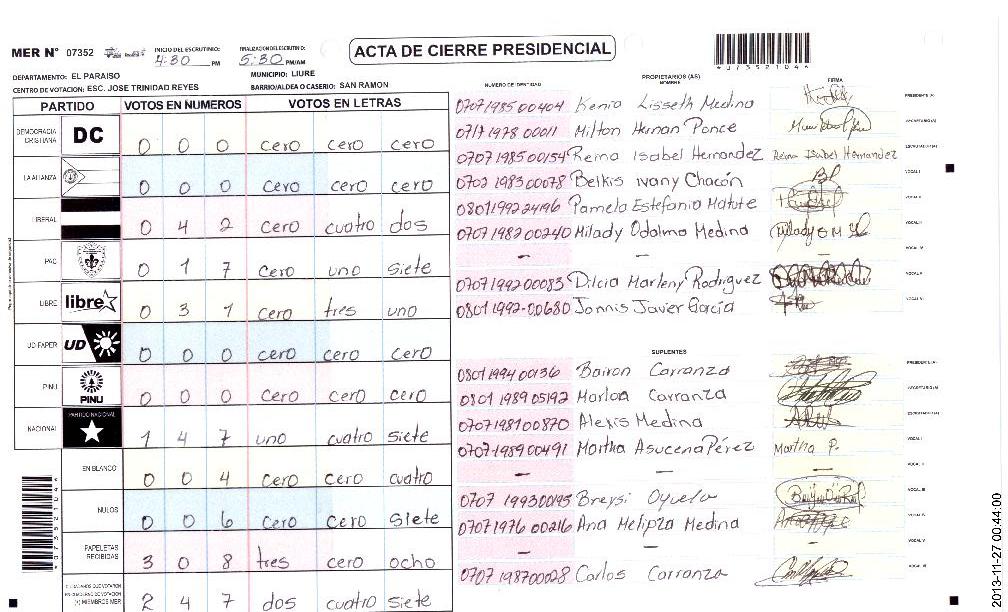 MER N° 07352
INICIO DEL ESCRUTINIO: 4:30 PM
FINALIZACION DEL ESCRUTINIO: 5:30 PM/AM
ACTA DE CIERRE PRESIDENCIAL
DEPARTAMENTO: EL PARAISO
MUNICIPIO: LIURE
CENTRO DE VOTACION: ESC. JOSE TRINIDAD REYES
BARRIO/ALDEA O CASERIO: SAN RAMON
PARTIDO VOTOS EN NUMEROS VOTOS EN LETRAS
DEMOCRACIA CRISTIANA DC 0 0 0 cero cero cero
LA ALIANZA 0 0 0 cero cero cero
LIBERAL 0 4 2 cero cuatro dos
PAC 0 1 7 cero uno siete
LIBRE libre 0 3 1 cero tres uno
UD FAPER UD 0 0 0 cero cero cero
PINU PINU 0 0 0 cero cero cero
NACIONAL PARTIDO NACIONAL 1 4 7 uno cuatro siete
EN BLANCO 0 0 4 cero cero cuatro
NULOS 0 0 6 cero cero siete
PAPELETAS RECIBIDAS 3 0 8 tres cero ocho
CIUDADANOS QUE VOTARON
(+) MIEMBROS MER 2 4 7 dos cuatro siete
NUMERO DE IDENTIDAD PROPIETARIOS (AS) NOMBRE FIRMA
0707 1985 00404 Kenia Lisseth Medina PRESIDENTE (A)
0717 1978 00011 Milton Hernan Ponce SECRETARIO (A)
0707 1985 00154 Reina Isabel Hernandez Reina Isabel Hernandez ESCRUTADOR (A)
0702 1983 00078 Belkis Ivany Chacón VOCAL I
0801 1992 24196 Pamela Estefania Matute VOCAL II
0707 1982 00240 Milady Odalma Medina VOCAL III
— — VOCAL IV
0707 1992 00083 Dilcia Marleny Rodriguez VOCAL V
0801 1992-00680 Jonnis Javier García VOCAL VI
SUPLENTES
0801 1994 00136 Bairon Carranza PRESIDENTE (A)
0801 1989 05192 Marlon Carranza SECRETARIO (A)
0707 1981 00870 Alexis Medina ESCRUTADOR (A)
0707 1989 00491 Martha Asucena Pérez Martha P. VOCAL I
— — — VOCAL II
0707 1993 00195 Breysi Oyuela VOCAL III
0707 1976 00216 Ana Medina VOCAL IV
— — — VOCAL V
0707 1987 00028 Carlos Carranza VOCAL VI
*07352104*
2013-11-27 00:44:00